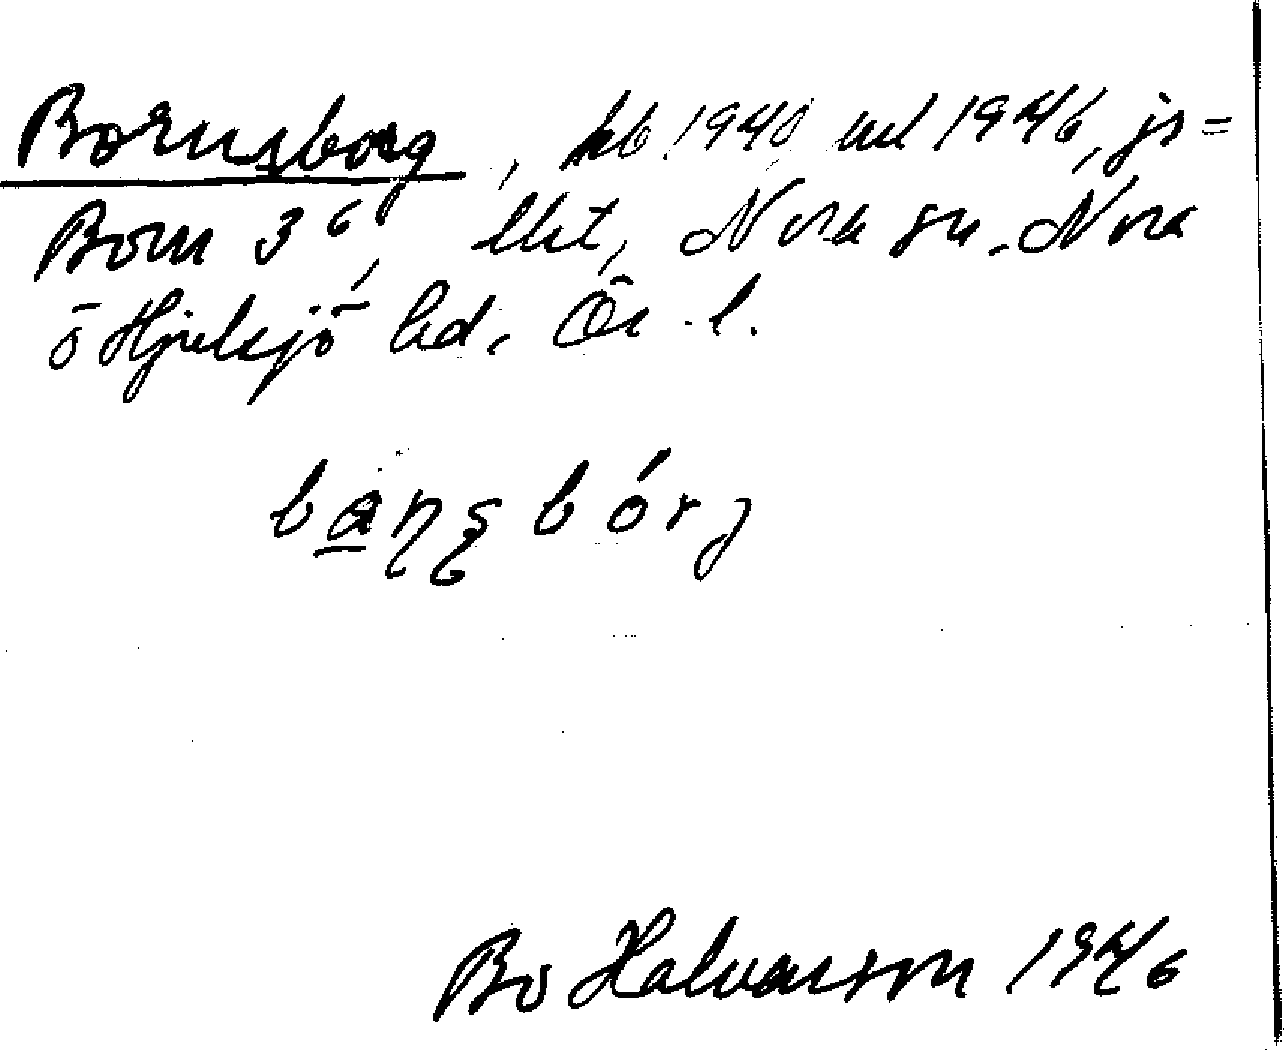 Bornsborg, kb 1940, ul 1946, js =
Born 3⁶, lht, Nora sn. Nora
o Hjulsjö bd, Ör l.
bạṇṣbórj
Bo Halvarson 1946